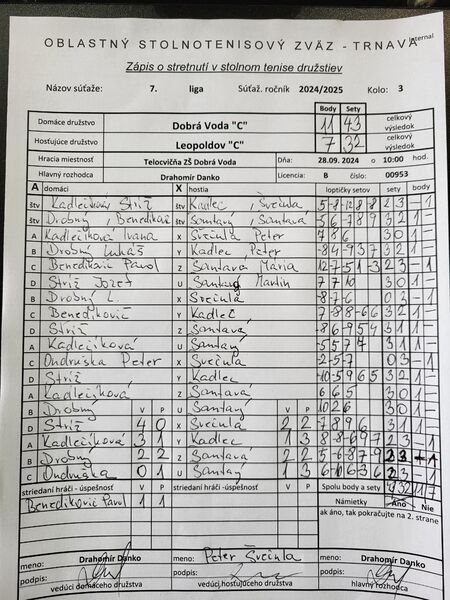 Internal
OBLASTNÝ STOLNOTENISOVÝ ZVÄZ - TRNAVA
Zápis o stretnutí v stolnom tenise družstiev
Názov súťaže: 7. liga Súťaž. ročník 2024/2025 Kolo: 3
Body Sety
Domáce družstvo Dobrá Voda "C" 11 43 celkový výsledok
Hosťujúce družstvo Leopoldov "C" 7 32 celkový výsledok
Hracia miestnosť Telocvičňa ZŠ Dobrá Voda Dňa: 28.09.2024 o 10:00 hod.
Hlavný rozhodca Drahomír Danko Licencia: B číslo: 00953
A domáci X hostia loptičky setov sety body
štv Kadlečíková, Stríž štv Kadlec, Švečula 2 3 - 1
štv Drobný, Benedikovič štv Šantavý, Šantavá 3 2 1 -
A Kadlečíková Ivana X Švečula Peter 7 8 6 3 0 1 -
B Drobný Lukáš Y Kadlec Peter 3 2 1 -
C Benedikovič Pavol Z Šantavá Mária 2 3 - 1
D Stríž Jozef U Šantavý Martin 7 7 10 3 0 1 -
B Drobný L. X Švečula -8 -7 -6 0 3 - 1
C Benedikovič Y Kadlec 3 2 1 -
D Stríž Z Šantavá 3 1 1 -
A Kadlečíková U Šantavý -5 5 7 4 3 1 1 -
C Ondruška Peter X Švečula -2 -5 -7 0 3 - 1
D Stríž Y Kadlec -10 -5 9 6 5 3 2 1 -
A Kadlečíková Z Šantavá 6 6 5 3 0 1 -
B Drobný V P U Šantavý V P 10 2 6 3 0 1 -
D Stríž 4 0 X Švečula 2 2 7 8 -9 6 3 1 1 -
A Kadlečíková 3 1 Y Kadlec 1 3 2 3 - 1
B Drobný 2 2 Z Šantavá 2 2 2 3 - 1
C Ondruška 0 1 U Šantavý 1 3 2 3 - 1
striedaní hráči - úspešnosť V P striedaní hráči - úspešnosť V P Spolu body a sety 43 32 11 7
Benedikovič Pavol 1 1 Námietky Áno Nie
ak áno, tak pokračujte na 2. strane
meno: Drahomír Danko meno: Peter Švečula meno: Drahomír Danko
podpis: podpis: podpis:
vedúci domáceho družstva vedúci hosťujúceho družstva hlavný rozhodca